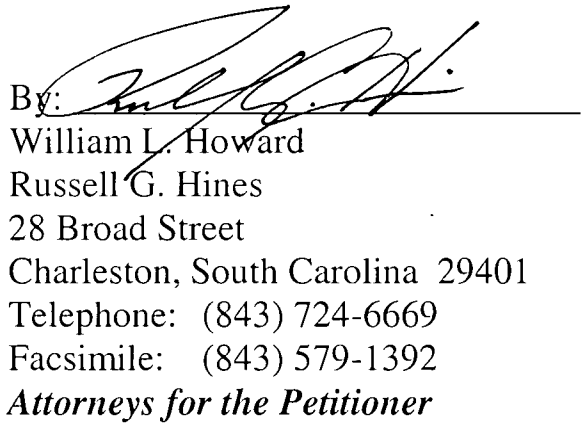 By:
William L. Howard
Russell G. Hines
28 Broad Street
Charleston, South Carolina 29401
Telephone: (843) 724-6669
Facsimile: (843) 579-1392
Attorneys for the Petitioner